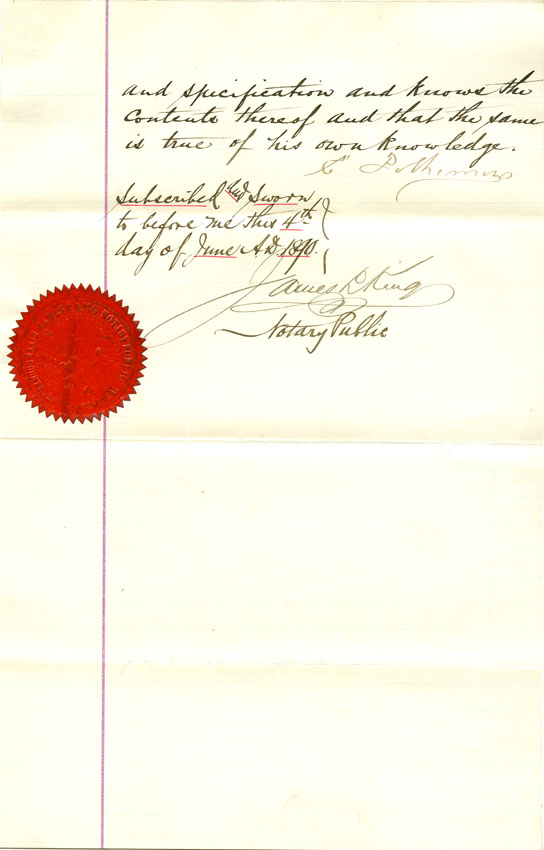 and specification and knows the
contents thereof and that the same
is true of his own knowledge.
Subscribed and Sworn
to before me this 4th
day of June A.D. 1890.
James R King
Notary Public